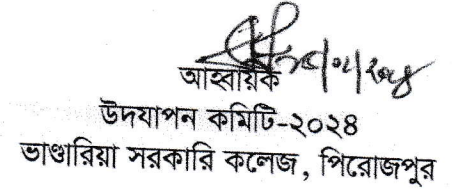 আহ্বায়ক
উদযাপন কমিটি-২০২৪
ভাণ্ডারিয়া সরকারি কলেজ, পিরোজপুর